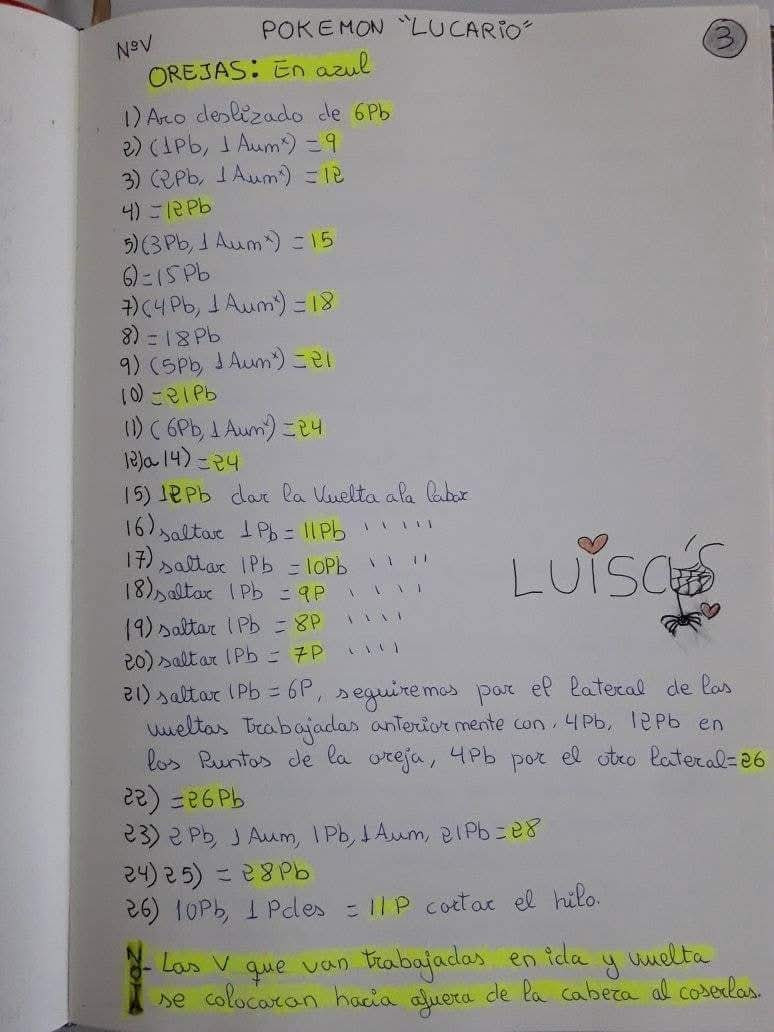 POKEMON "LUCARIO"
3
NºV
OREJAS: En azul
1) Aro deslizado de 6Pb
2) (1Pb, 1 Aumˣ) = 9
3) (2Pb, 1 Aumˣ) = 12
4) = 12Pb
5) (3Pb, 1 Aumˣ) = 15
6) = 15Pb
7) (4Pb, 1 Aumˣ) = 18
8) = 18Pb
9) (5Pb, 1 Aumˣ) = 21
10) = 21Pb
11) (6Pb, 1 Aumˣ) = 24
12) a 14) = 24
15) 12Pb dar la Vuelta a la labor
16) saltar 1Pb = 11Pb ' ' ' ' '
17) saltar 1Pb = 10Pb ' ' ' '
18) saltar 1Pb = 9P ' ' ' '
19) saltar 1Pb = 8P ' ' ' '
20) saltar 1Pb = 7P ' ' ' '
LUISA'S
21) saltar 1Pb = 6P, seguiremos por el lateral de las
vueltas trabajadas anteriormente con, 4Pb, 12Pb en
los Puntos de la oreja, 4Pb por el otro lateral = 26
22) = 26Pb
23) 2Pb, 1 Aum, 1Pb, 1 Aum, 21Pb = 28
24) 25) = 28Pb
26) 10Pb, 1 Pdes = 11P cortar el hilo.
NOTA - Las V que van trabajadas en ida y vuelta
se colocaran hacia afuera de la cabeza al coserlas.